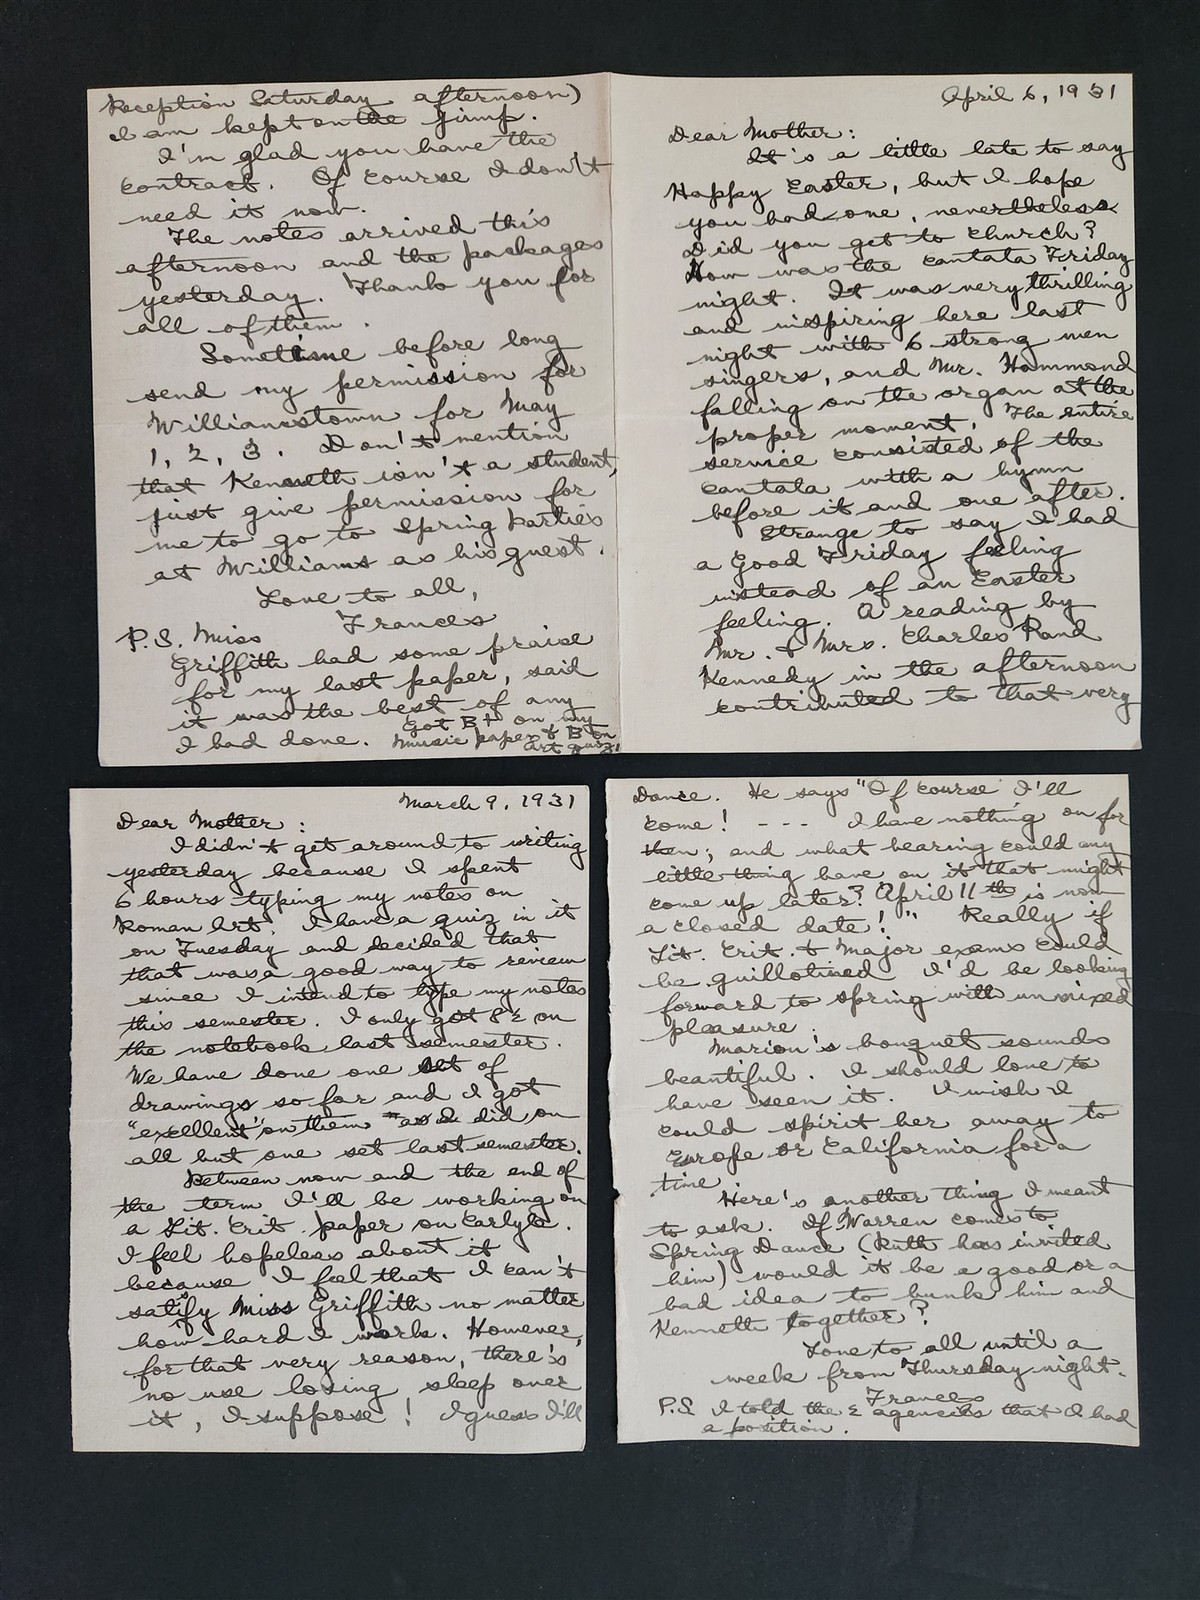 Reception Saturday afternoon)
I am kept on the jump.
I'm glad you have the
contract. Of course I don't
need it now.
The notes arrived this
afternoon and the packages
yesterday. Thank you for
all of them.
Sometime before long
send my permission for
Williamstown for May
1, 2, 3. Don't mention
that Kenneth isn't a student,
just give permission for
me to go to Spring Parties
at Williams as his guest.
Love to all,
Frances
P.S. Miss
Griffith had some praise
for my last paper, said
it was the best of any
I had done. Got B+ on my
music paper & B on
art quiz!
April 6, 1931
Dear Mother:
It's a little late to say
Happy Easter, but I hope
you had one, nevertheless.
Did you get to church?
How was the cantata Friday
night. It was very thrilling
and inspiring here last
night with 6 strong men
singers, and Mr. Hammond
falling on the organ at the
proper moment. The entire
service consisted of the
cantata with a hymn
before it and one after.
Strange to say I had
a Good Friday feeling
instead of an Easter
feeling. A reading by
Mr. & Mrs. Charles Rand
Kennedy in the afternoon
contributed to that very
March 9, 1931
Dear Mother:
I didn't get around to writing
yesterday because I spent
6 hours typing my notes on
Roman Art. I have a quiz in it
on Tuesday and decided that
that was a good way to review
since I intend to type my notes
this semester. I only got 82 on
the notebook last semester.
We have done one set of
drawings so far and I got
"excellent" on them as I did on
all but one set last semester.
Between now and the end of
the term I'll be working on
a Lit. Crit. paper on Carlyle.
I feel hopeless about it
because I feel that I can't
satisfy Miss Griffith no matter
how hard I work. However,
for that very reason, there's
no use losing sleep over
it, I suppose! I guess I'll
Dance. He says "Of course I'll
come! --- I have nothing on for
then; and what bearing could any
little thing have on it that might
come up later? April 11th is now
a closed date!" Really if
Lit. Crit. & Major exams could
be guillotined I'd be looking
forward to spring with unmixed
pleasure.
Marion's bouquet sounds
beautiful. I should love to
have seen it. I wish I
could spirit her away to
Europe or California for a
time.
Here's another thing I meant
to ask. If Warren comes to
Spring Dance (Ruth has invited
him) would it be a good or a
bad idea to bunk him and
Kenneth together?
Love to all until a
week from Thursday night.
Frances
P.S. I told the 2 agencies that I had
a position.